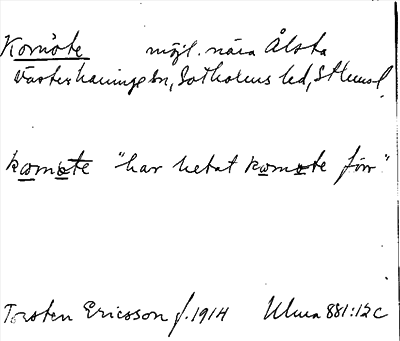 Komöte möjl. nära Ålsta
Västerhaninge sn, Sotholms hd, Sthms l.
komote "har hetat komote förr"
Torsten Ericsson f. 1914 Ulma 881:12c